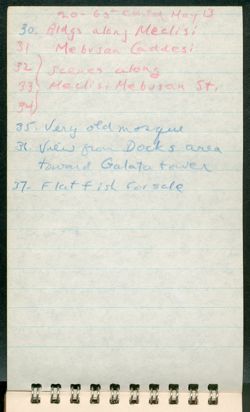 30. Bldgs along Meclisi
31 Mebusan Caddesi
32 } Scenes along
33 } Meclisi Mebusan St.
34 }
35. Very old mosque
36. View from Docks area
toward Galata tower
37. Flat fish for sale